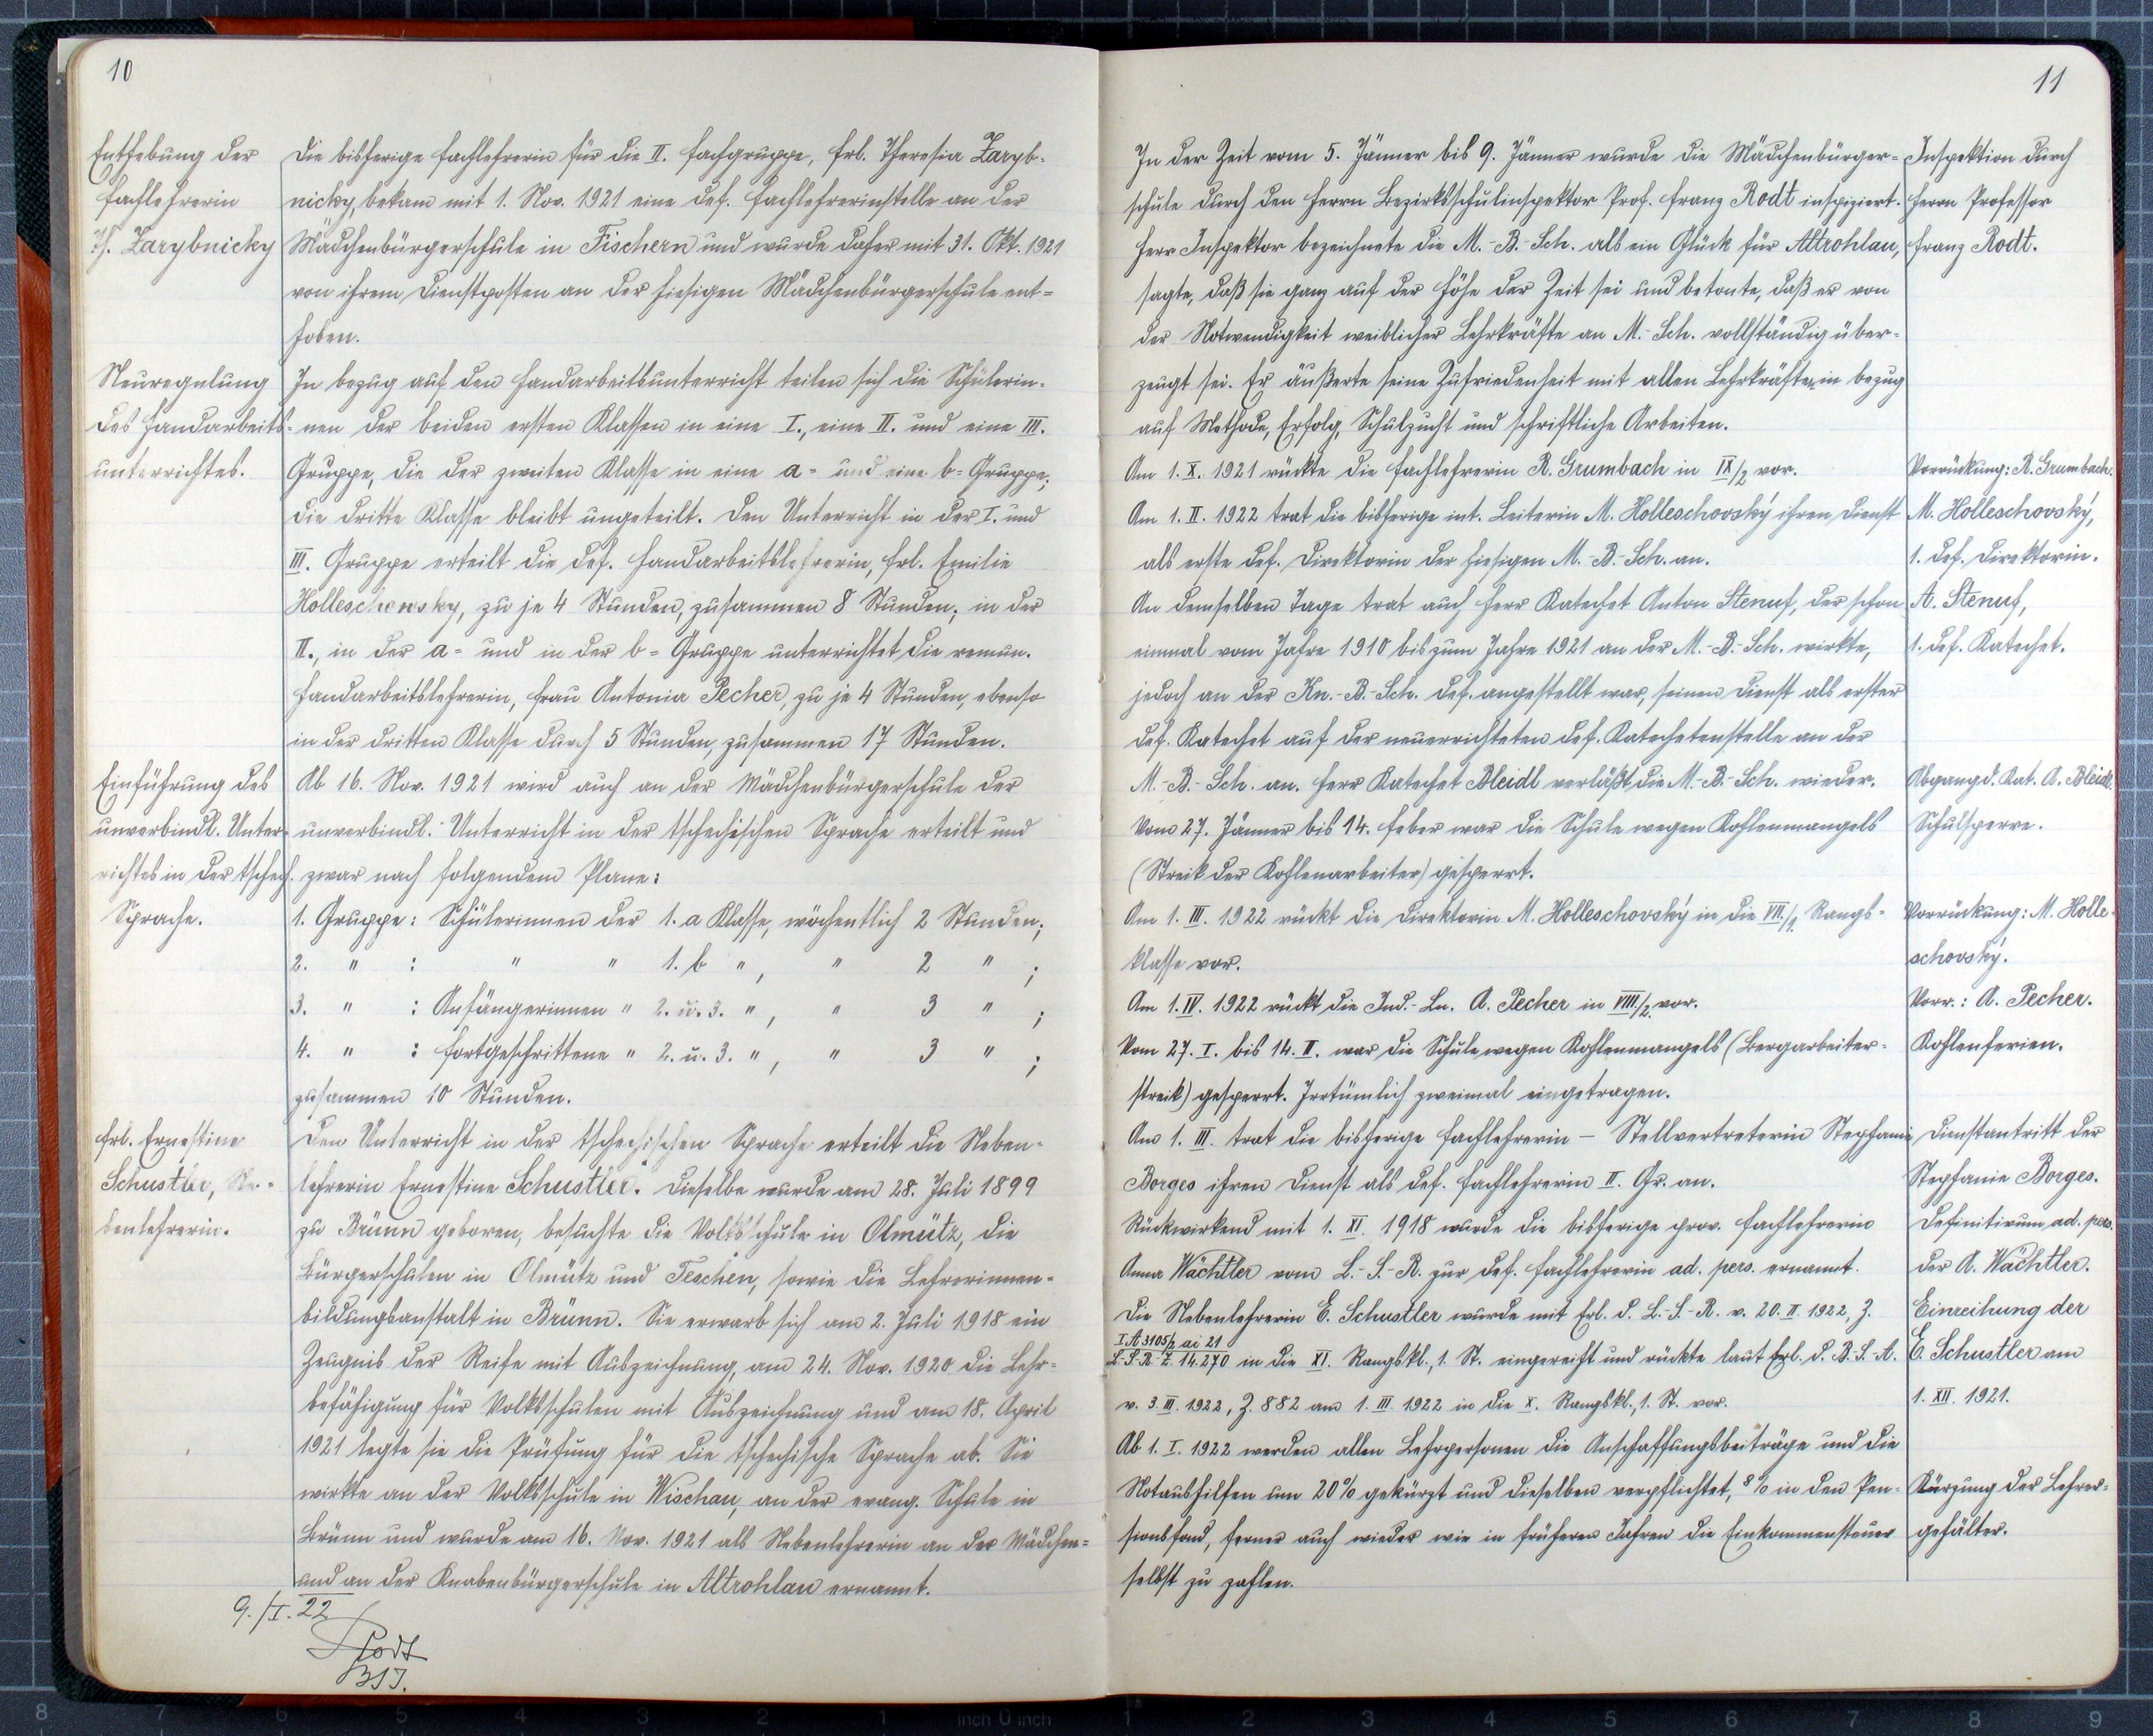 10
Enthebung der
Fachlehrerin
Th. Zarybnicky
Die bisherige Fachlehrerin für die II. Fachgruppe, Frl. Theresia Zaryb-
nicky, bekam mit 1. Nov. 1921 eine def. Fachlehrerinstelle an der
Mädchenbürgerschule in Fischern und wurde daher mit 31. Okt. 1921
von ihrem Dienstposten an der hiesigen Mädchenbürgerschule ent=
hoben.
Neuregelung
des Handarbeits=
unterrichtes.
In bezug auf den Handarbeitsunterricht teilen sich die Schülerin-
nen der beiden ersten Klassen in eine I., eine II. und eine III.
Gruppe, die der zweiten Klasse in eine a= und eine b=Gruppe;
die dritte Klasse bleibt ungeteilt. Den Unterricht in der I. und
III. Gruppe erteilt die def. Handarbeitslehrerin, Frl. Emilie
Holleschowsky, zu je 4 Stunden, zusammen 8 Stunden; in der
II., in der a= und in der b=Gruppe unterrichtet die remun.
Handarbeitslehrerin, Frau Antonia Pecher, zu je 4 Stunden, ebenso
in der dritten Klasse durch 5 Stunden, zusammen 17 Stunden.
Einführung des
unverbindl. Unter=
richtes in der tschech.
Sprache.
Ab 16. Nov. 1921 wird auch an der Mädchenbürgerschule der
unverbindl. Unterricht in der tschechischen Sprache erteilt und
zwar nach folgendem Plane:
1. Gruppe: Schülerinnen der 1. a Klasse, wöchentlich 2 Stunden;
2. " : " " 1. b ", " 2 " ;
3. " : Anfängerinnen " 2. u. 3. ", " 3 " ;
4. " : Fortgeschrittene " 2. u. 3. ", " 3 " ;
zusammen 10 Stunden.
Frl. Ernestine
Schustler, Ne-
benlehrerin.
Den Unterricht in der tschechischen Sprache erteilt die Neben-
lehrerin Ernestine Schustler. Dieselbe wurde am 28. Juli 1899
zu Brünn geboren, besuchte die Volksschule in Olmütz, die
Bürgerschulen in Olmütz und Teschen, sowie die Lehrerinnen-
bildungsanstalt in Brünn. Sie erwarb sich am 2. Juli 1918 ein
Zeugnis der Reife mit Auszeichnung, am 24. Nov. 1920 die Lehr-
befähigung für Volksschulen mit Auszeichnung und am 18. April
1921 legte sie die Prüfung für die tschechische Sprache ab. Sie
wirkte an der Volksschule in Wischau, an der evang. Schule in
Brünn und wurde am 16. Nov. 1921 als Nebenlehrerin an der Mädchen=
und an der Knabenbürgerschule in Altrohlau ernannt.
9./I. 22
Rodt
BSI.
11
In der Zeit vom 5. Jänner bis 9. Jänner wurde die Mädchenbürger=
schule durch den Herrn Bezirksschulinspektor Prof. Franz Rodt inspiziert.
Herr Inspektor bezeichnete die M.-B.-Sch. als ein Glück für Altrohlau,
sagte, daß sie ganz auf der Höhe der Zeit sei und betonte, daß er von
der Notwendigkeit weiblicher Lehrkräfte an M.-Sch. vollständig über-
zeugt sei. Er äußerte seine Zufriedenheit mit allen Lehrkräften in bezug
auf Methode, Erfolg, Schulzucht und schriftliche Arbeiten.
Inspektion durch
Herrn Professor
Franz Rodt.
Am 1. X. 1921 rückte die Fachlehrerin R. Grumbach in IX/2 vor.
Vorrückung: R. Grumbach.
Am 1. II. 1922 trat die bisherige int. Leiterin M. Holleschovský ihren Dienst
als erste def. Direktorin der hiesigen M.-B.-Sch. an.
M. Holleschovský,
1. def. Direktorin.
An demselben Tage trat auch Herr Katechet Anton Stenuf, der schon
einmal vom Jahre 1910 bis zum Jahre 1921 an der M.-B.-Sch. wirkte,
jedoch an der Kn.-B.-Sch. def. angestellt war, seinen Dienst als erster
def. Katechet auf der neuerrichteten def. Katechetenstelle an der
M.-B.-Sch. an. Herr Katechet Bleidl verläßt die M.-B.-Sch. wieder.
A. Stenuf,
1. def. Katechet.
Abgang d. Kat. A. Bleidl.
Vom 27. Jänner bis 14. Feber war die Schule wegen Kohlenmangels
(Streik der Kohlenarbeiter) gesperrt.
Schulsperre.
Am 1. III. 1922 rückt die Direktorin M. Holleschovský in die VII./1. Rangs-
klasse vor.
Vorrückung: M. Holle-
schovský.
Am 1. IV. 1922 rückt die Ind.-Ln. A. Pecher in VIII./2. vor.
Vorr.: A. Pecher.
Vom 27. I. bis 14. II. war die Schule wegen Kohlenmangels (Bergarbeiter-
streik) gesperrt. Irrtümlich zweimal eingetragen.
Kohlenferien.
Am 1. III. trat die bisherige Fachlehrerin - Stellvertreterin Stephanie
Borges ihren Dienst als def. Fachlehrerin II. Gr. an.
Dienstantritt der
Stephanie Borges.
Rückwirkend mit 1. XI. 1918 wurde die bisherige prov. Fachlehrerin
Anna Wächtler vom L.-S.-R. zur def. Fachlehrerin ad. pers. ernannt.
Definitivum ad. pers.
der A. Wächtler.
Die Nebenlehrerin E. Schustler wurde mit Erl. d. L.-S.-R. v. 20. II. 1922, Z.
I. A 3105/2 ai 21
L-S-R-Z. 14.270 in die XI. Rangskl., 1. St. eingereiht und rückte laut Erl. d. B.-S.-A.
v. 3. III. 1922, Z. 882 am 1. III. 1922 in die X. Rangskl., 1. St. vor.
Einreihung der
E. Schustler am
1. XII. 1921.
Ab 1. I. 1922 werden allen Lehrpersonen die Anschaffungsbeiträge und die
Notaushilfen um 20% gekürzt und dieselben verpflichtet, 8% in den Pen-
sionsfond, ferner auch wieder wie in früheren Jahren die Einkommensteuer
selbst zu zahlen.
Kürzung der Lehrer=
gehälter.
8 7 6 5 4 3 2 1 inch 0 inch 1 2 3 4 5 6 7 8 9